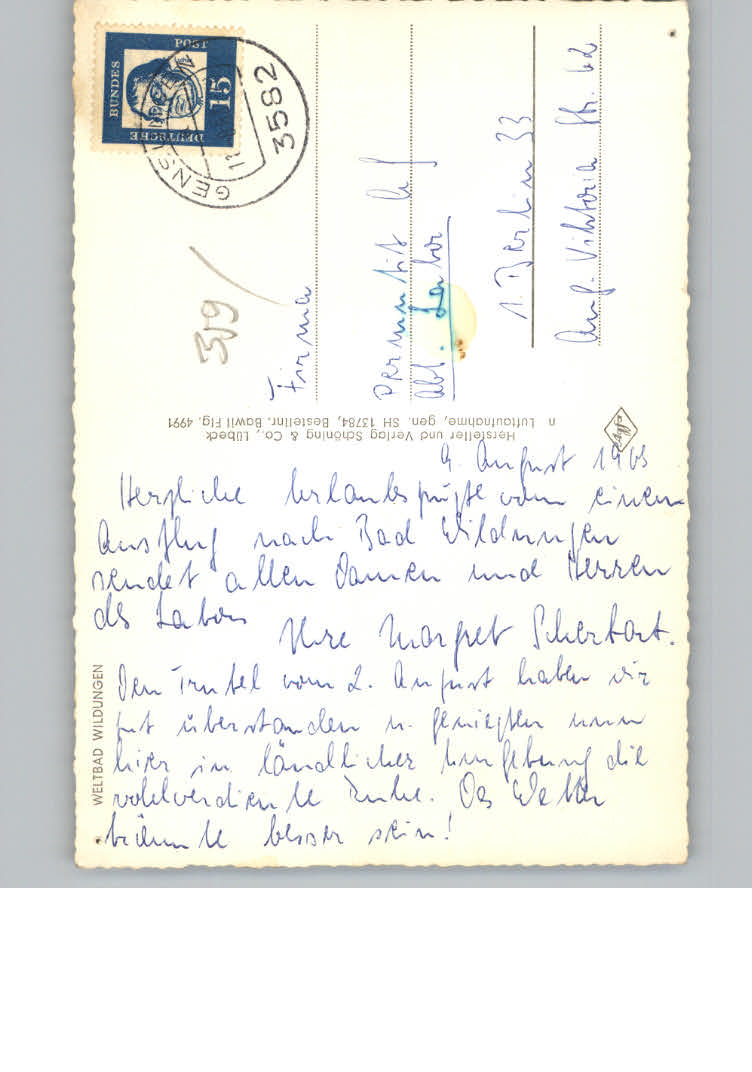 9. August 1963
Herzliche Urlaubsgrüße von einem
Ausflug nach Bad Wildungen
sendet allen Damen und Herren
des Labors
Ihre Margret Scherbart.
Den Trubel vom 2. August haben wir
gut überstanden u. genießen nun
hier in ländlicher Umgebung die
wohlverdiente Ruhe. Das Wetter
könnte besser sein!
Firma
Permutit AG
Abt. Labor
1 Berlin 33
Aug. Viktoria Str. 62
319
WELTBAD WILDUNGEN
Hersteller und Verlag Schöning & Co., Lübeck
n Luftaufnahme, gen. SH 13784, Bestellnr. Bawil Flg. 4991
DEUTSCHE
BUNDES
POST
15
3582